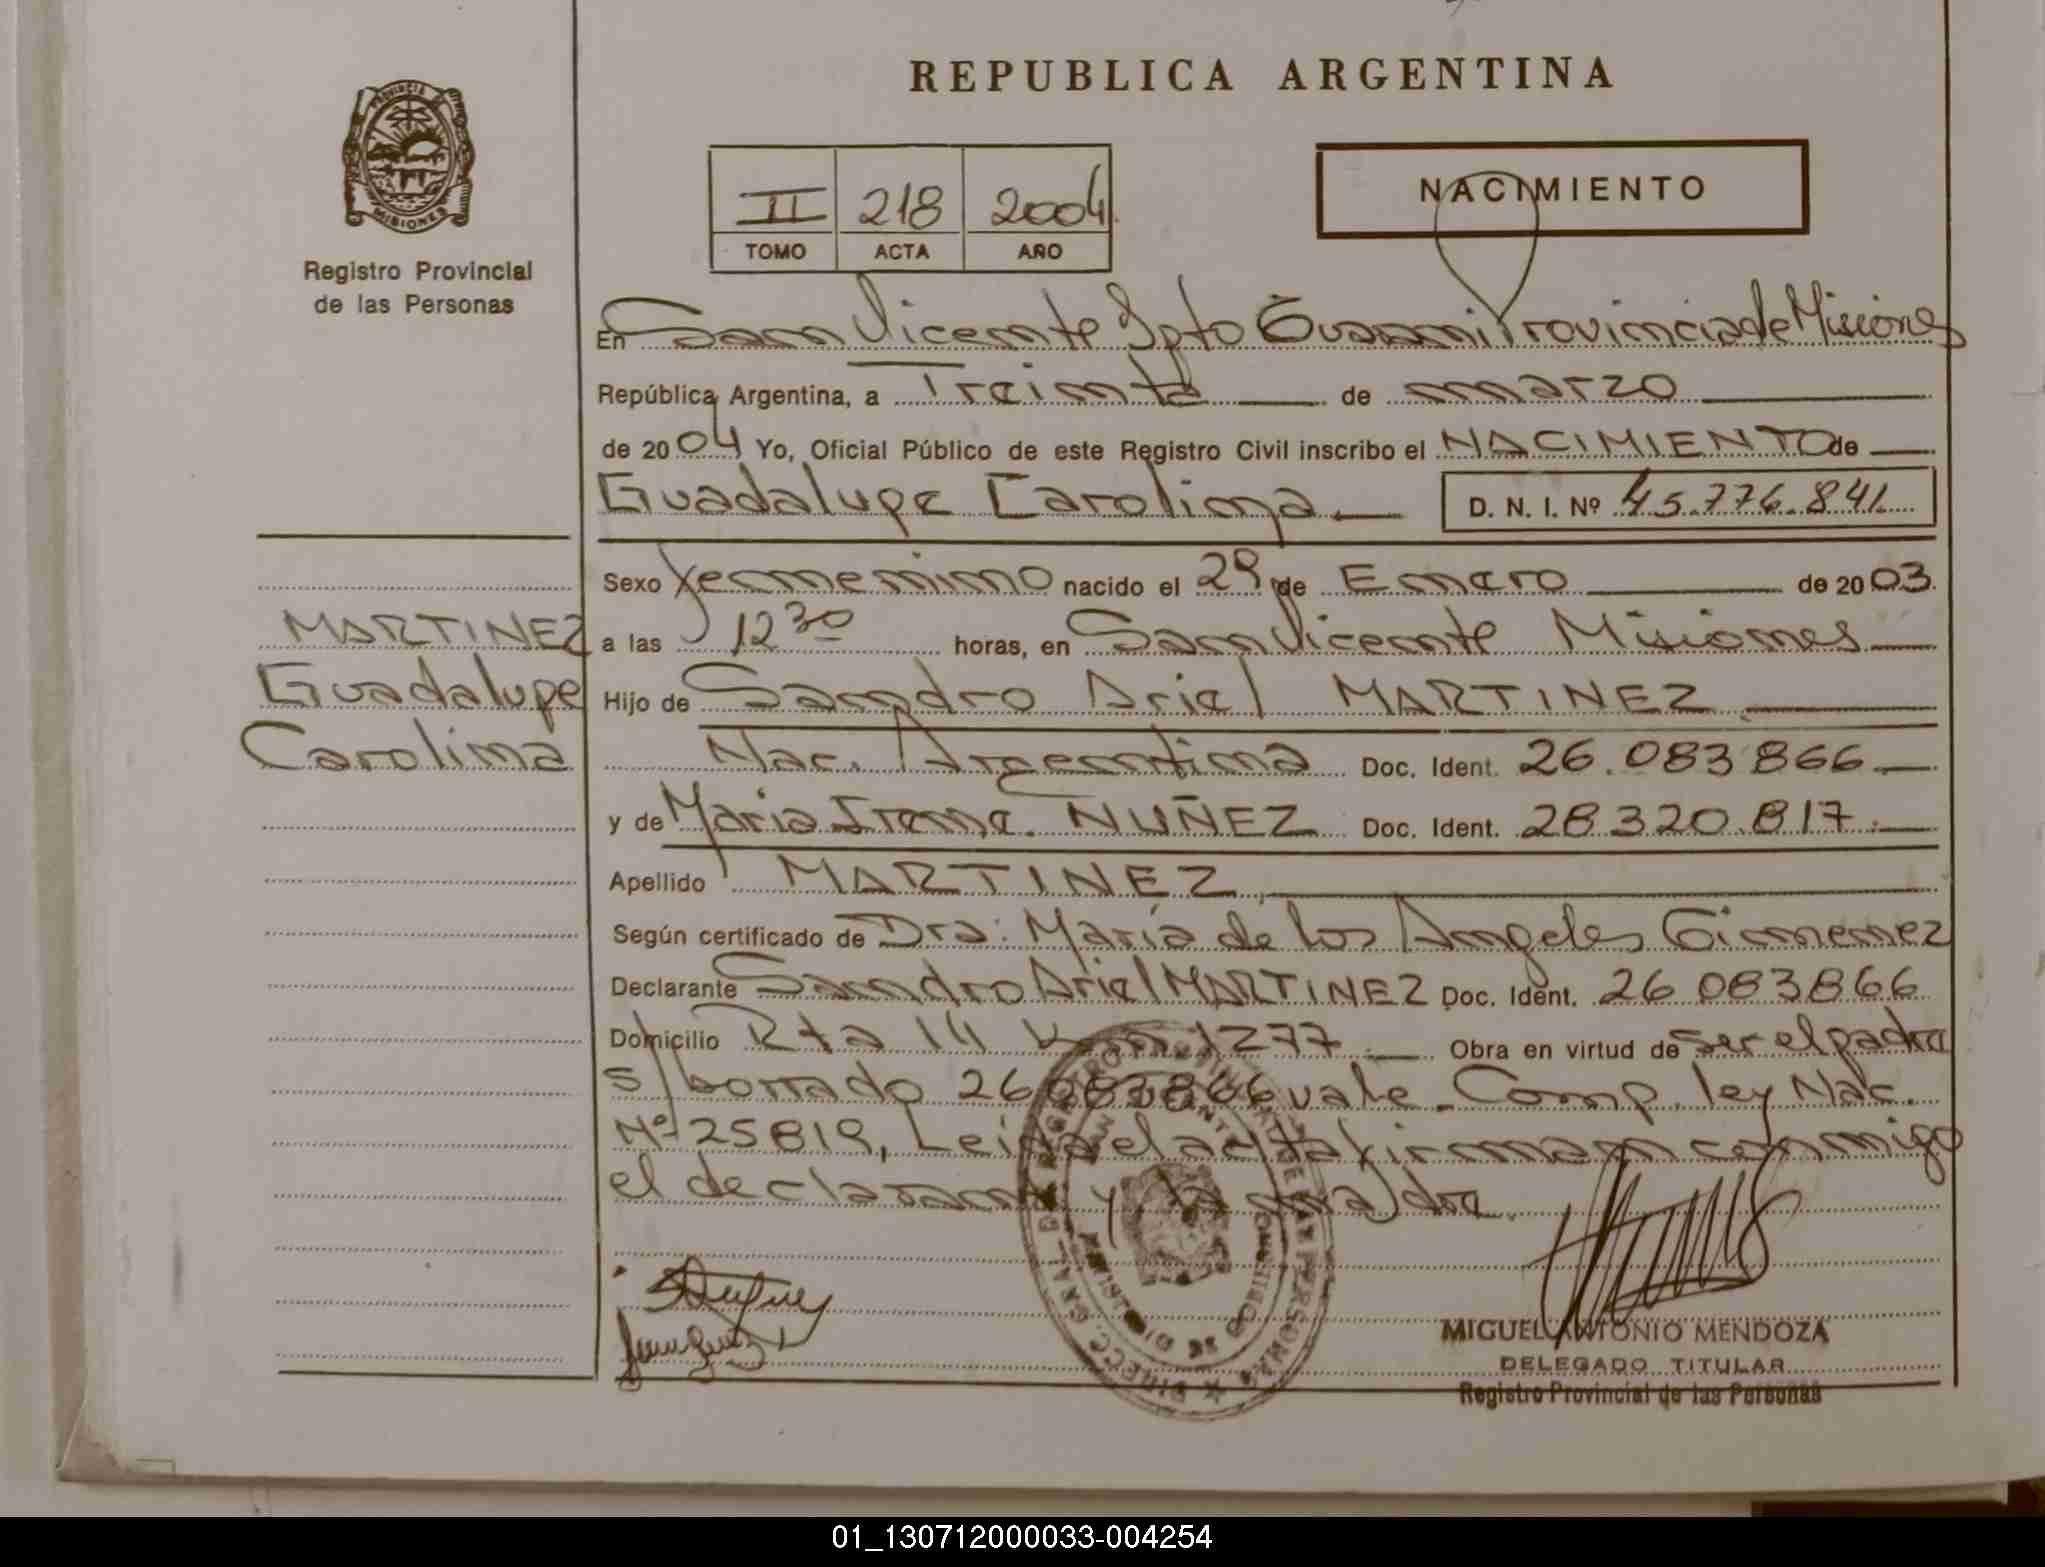 REPUBLICA ARGENTINA
PROVINCIA DE
MISIONES
Registro Provincial
de las Personas
II 218 2004
TOMO ACTA AÑO
NACIMIENTO
En San Vicente Dpto Guarani Provincia de Misiones
República Argentina, a Treinta de marzo
de 2004 Yo, Oficial Público de este Registro Civil inscribo el NACIMIENTO de
Guadalupe Carolina D. N. I. Nº 45.776.841
Sexo femenino nacido el 29 de Enero de 2003
a las 12 30 horas, en San Vicente Misiones
Hijo de Sandro Ariel MARTINEZ
Nac. Argentina Doc. Ident. 26.083 866
y de Maria Irene NUÑEZ Doc. Ident. 28 320.817
Apellido MARTINEZ
Según certificado de Dra: María de los Angeles Gimenez
Declarante Sandro Ariel MARTINEZ Doc. Ident. 26 083866
Domicilio Rta 14 Km 1277 Obra en virtud de ser el padre
s/borrado 26083866 vale - Comp. ley Nac.
Nº 25819, Leida el acta firman conmigo
el declarante y la madre.
MARTINEZ
Guadalupe
Carolina
MIGUEL ANTONIO MENDOZA
DELEGADO TITULAR
Registro Provincial de las Personas
01_130712000033-004254